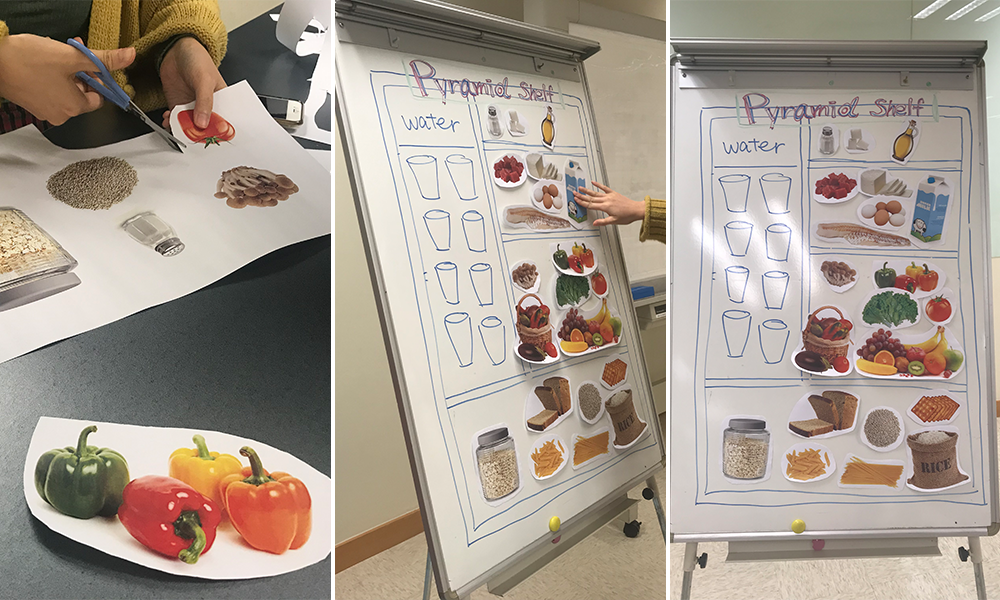 Pyramid Shelf
water
RICE
Pyramid Shelf
water
RICE